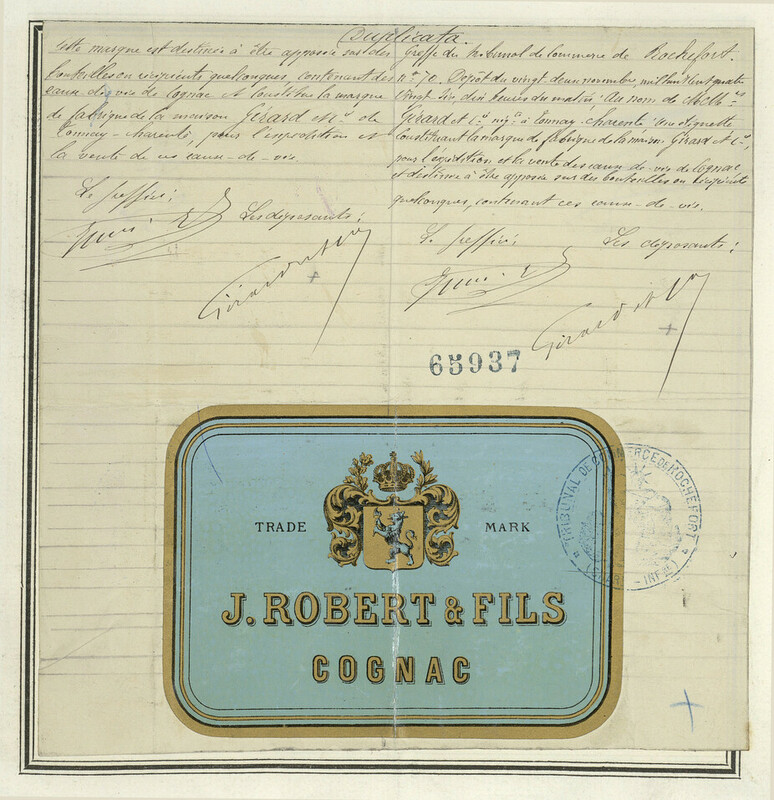 Duplicata
Cette marque est destinée à être apposée sur des
bouteilles ou récipients quelconques, contenant des
eaux-de-vie de Cognac et constitue la marque
de fabrique de la maison Girard et Cie de
Tonnay-Charente, pour l'expédition et
la vente de ces eaux-de-vie.
Le greffier:
Les déposants:
Girard et Cie
Greffe du tribunal de Commerce de Rochefort.
Dépôt du vingt deux novembre, mil huit cent quatre
vingt six, dix heures du matin; Au nom de
Girard et Cie négts à Tonnay-Charente: Une étiquette
constituant la marque de fabrique de la maison Girard et Cie,
pour l'expédition et la vente des eaux-de-vie de Cognac
et destinée à être apposée sur des bouteilles ou récipients
quelconques, contenant ces eaux-de-vie.
Le greffier:
Les déposants:
Girard et Cie
65937
TRADE MARK
J. ROBERT & FILS
COGNAC
TRIBUNAL DE COMMERCE DE ROCHEFORT
(CHARte-INFre)